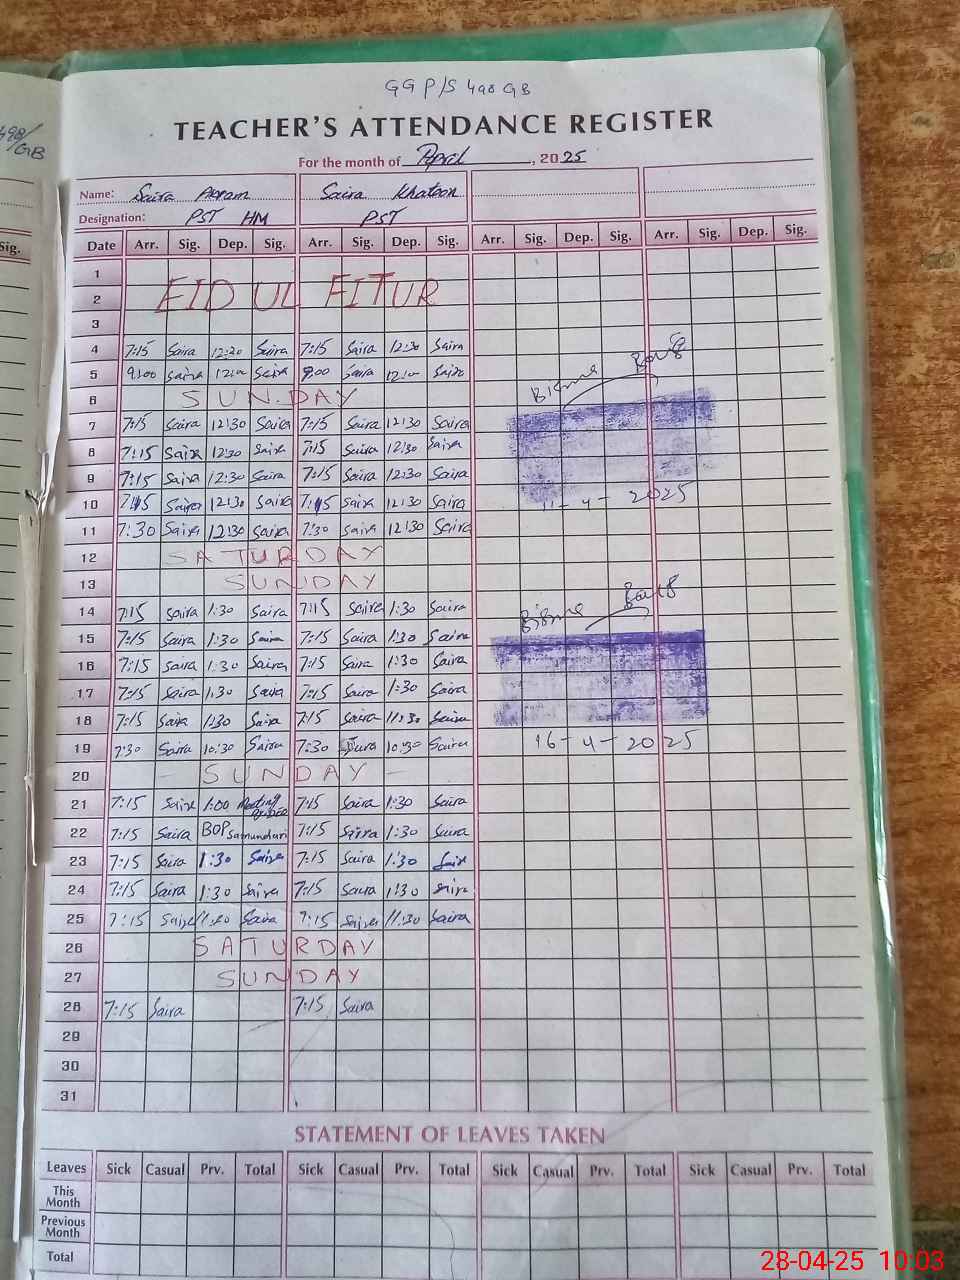 498/
GB
GGP/S 498 GB
TEACHER'S ATTENDANCE REGISTER
For the month of April, 2025
Name: Saira Akram Saira Khatoon
Designation: PST HM PST
Sig. Date Arr. Sig. Dep. Sig. Arr. Sig. Dep. Sig. Arr. Sig. Dep. Sig. Arr. Sig. Dep. Sig.
1
2 EID UL FITUR
3
4 7:15 Saira 12:30 Saira 7:15 Saira 12:30 Saira
5 9:00 Saira 12:00 Saira 9:00 Saira 12:00 Saira
6 SUNDAY
7 7:15 Saira 12:30 Saira 7:15 Saira 12:30 Saira
8 7:15 Saira 12:30 Saira 7:15 Saira 12:30 Saira
9 7:15 Saira 12:30 Saira 7:15 Saira 12:30 Saira
10 7:15 Saira 12:30 Saira 7:15 Saira 12:30 Saira 11-4-2025
11 7:30 Saira 12:30 Saira 7:30 Saira 12:30 Saira
12 SATURDAY
13 SUNDAY
14 7:15 Saira 1:30 Saira 7:15 Saira 1:30 Saira
15 7:15 Saira 1:30 Saira 7:15 Saira 1:30 Saira
16 7:15 Saira 1:30 Saira 7:15 Saira 1:30 Saira
17 7:15 Saira 1:30 Saira 7:15 Saira 1:30 Saira
18 7:15 Saira 11:30 Saira 7:15 Saira 11:30 Saira
19 7:30 Saira 10:30 Saira 7:30 Saira 10:30 Saira 16-4-2025
20 SUNDAY
21 7:15 Saira 1:00 Meeting 7:15 Saira 1:30 Saira
22 7:15 Saira BOP Samundari 7:15 Saira 1:30 Saira
23 7:15 Saira 1:30 Saira 7:15 Saira 1:30 Saira
24 7:15 Saira 1:30 Saira 7:15 Saira 1:30 Saira
25 7:15 Saira 11:30 Saira 7:15 Saira 11:30 Saira
26 SATURDAY
27 SUNDAY
28 7:15 Saira 7:15 Saira
29
30
31
STATEMENT OF LEAVES TAKEN
Leaves Sick Casual Prv. Total Sick Casual Prv. Total Sick Casual Prv. Total Sick Casual Prv. Total
This
Month
Previous
Month
Total
28-04-25 10:03